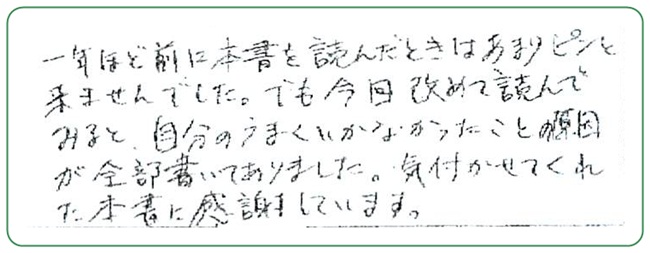 一年ほど前に本書を読んだときはあまりピンと
来ませんでした。でも今回改めて読んで
みると、自分のうまくいかなかったこと原因
が全部書いてありました。気付かせてくれ
た本書に感謝しています。